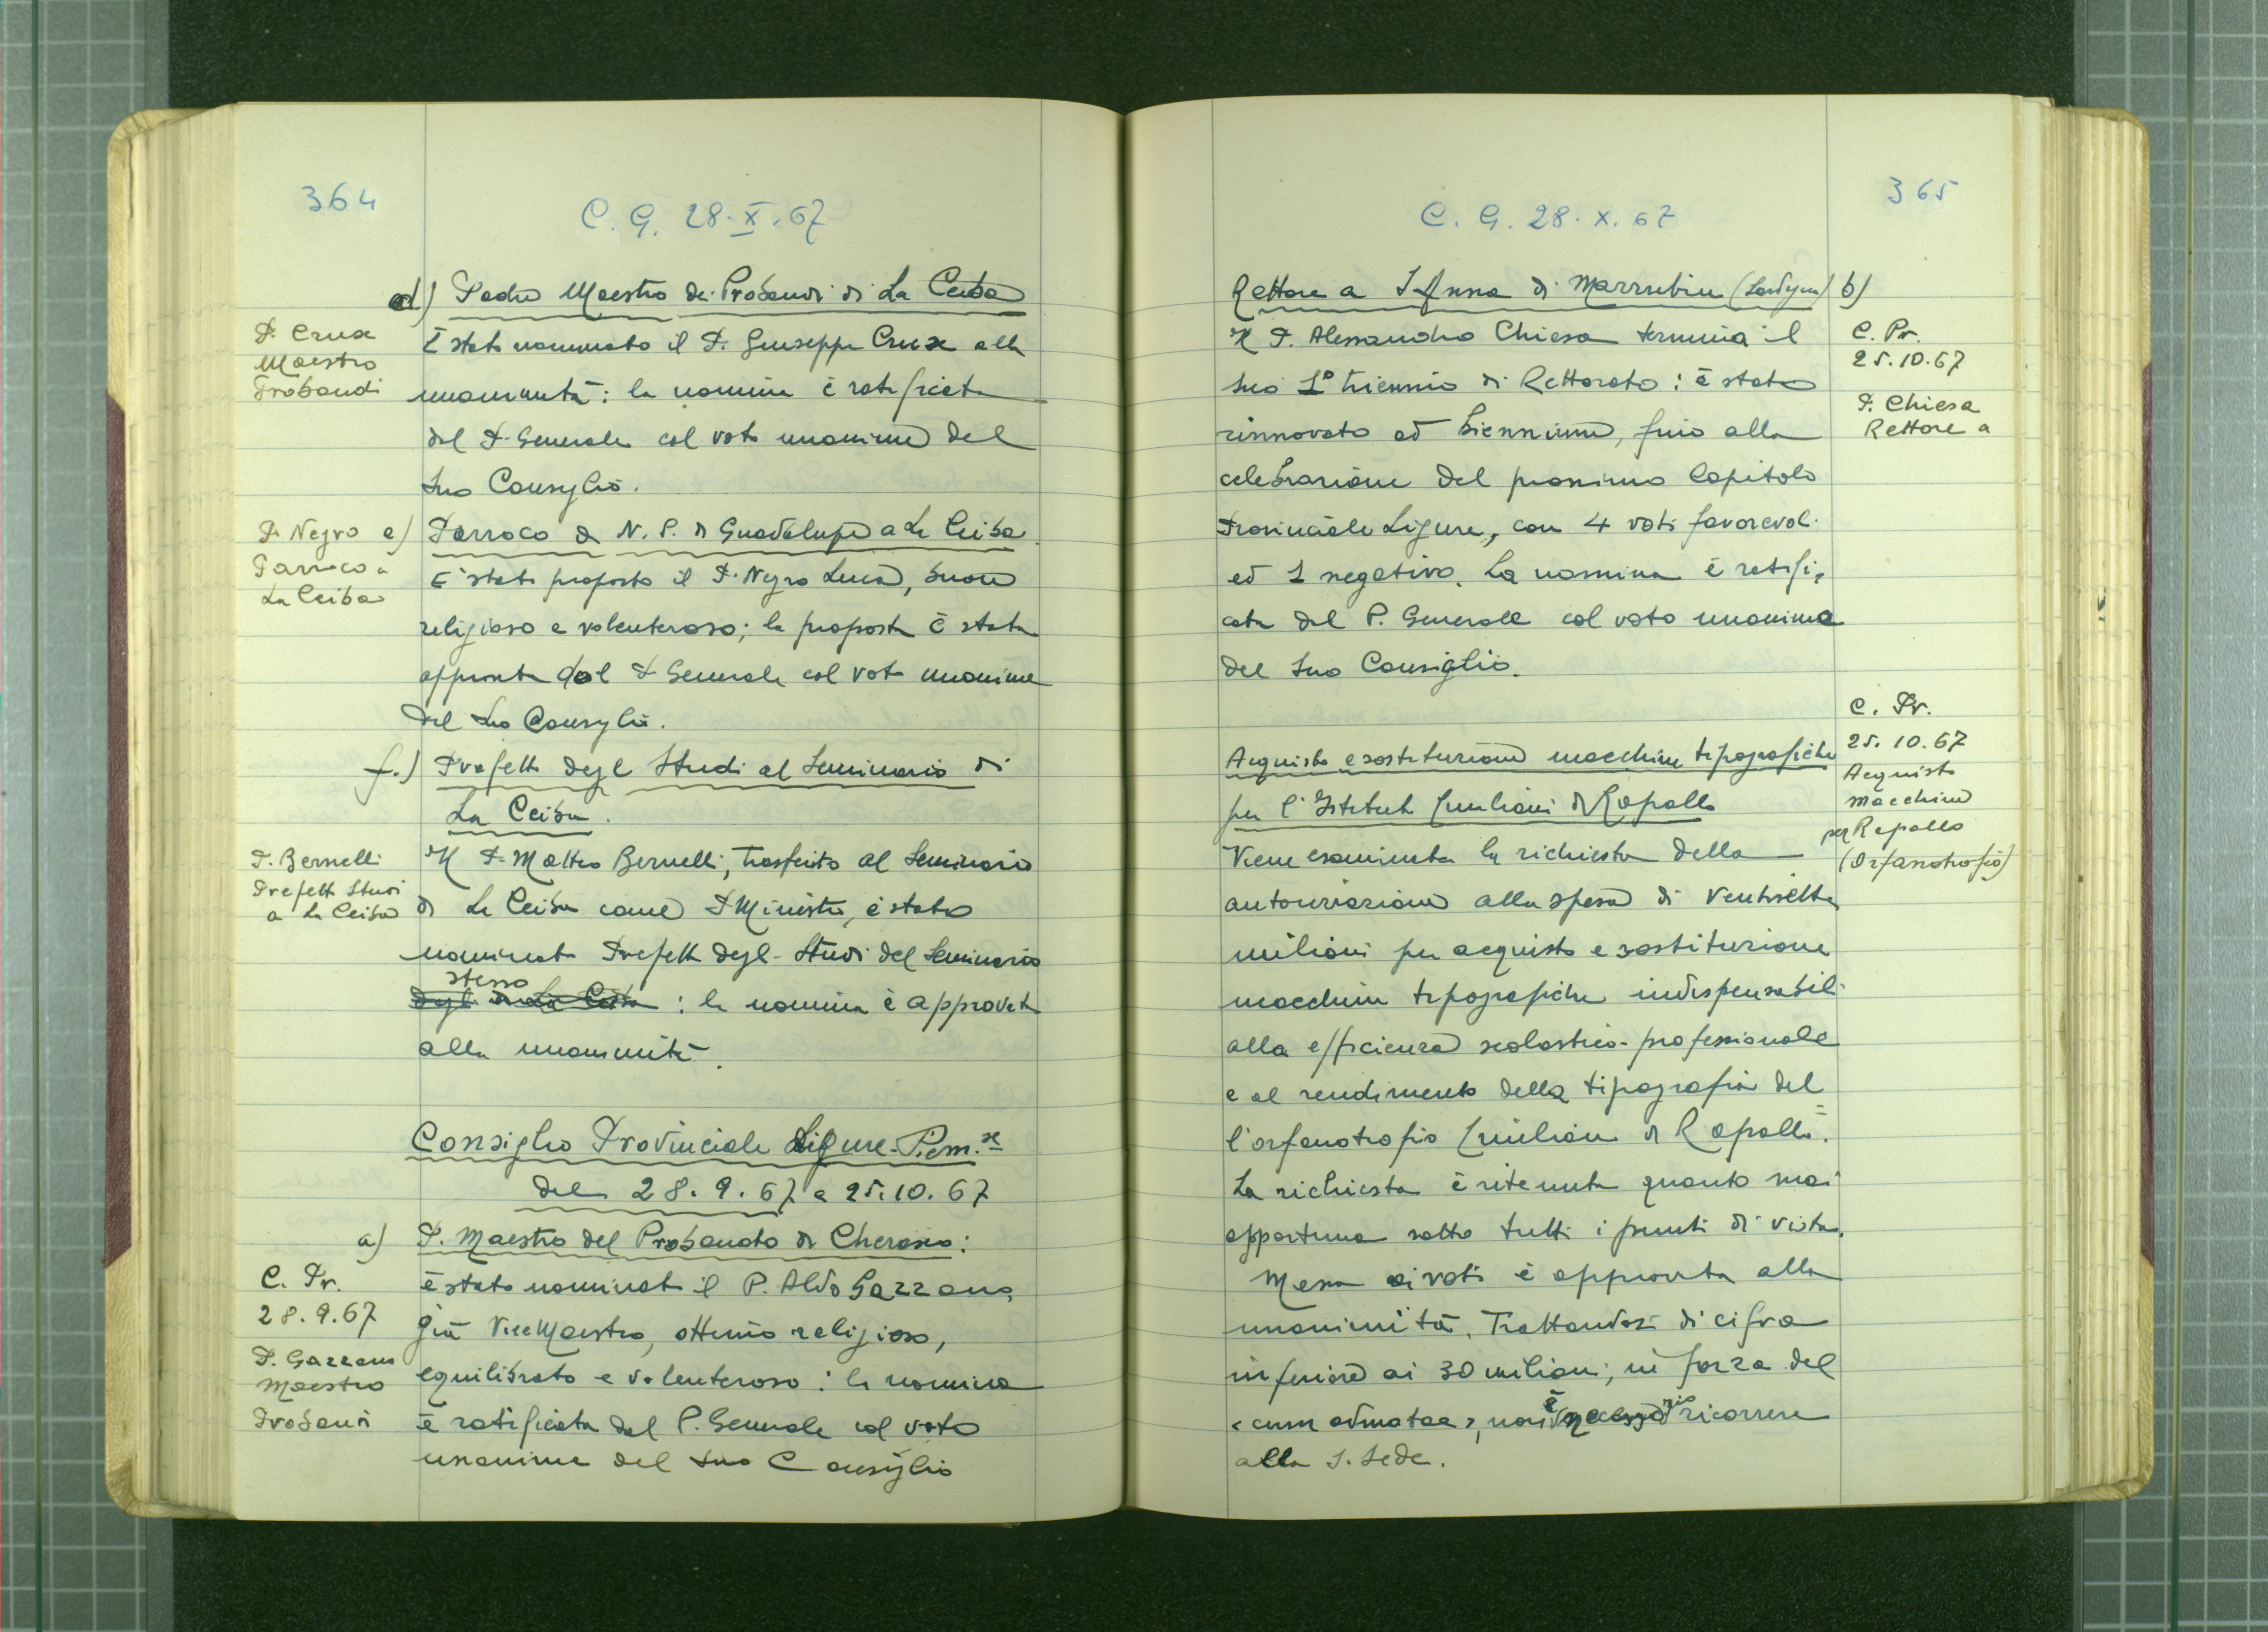 364
C. G. 28.X.67
d) Padre Maestro dei Probandi di La Ceiba
P. Crux
Maestro
Probandi
È stato nominato il P. Giuseppe Crux alla
unanimità: la nomina è ratificata
dal P. Generale col voto unanime del
suo Consiglio.
P. Negro
Parroco a
La Ceiba
e) Parroco di N. S. di Guadalupe a La Ceiba
È stato proposto il P. Negro Luca, buon
religioso e volenteroso; la proposta è stata
approvata dal P. Generale col voto unanime
del suo Consiglio.
f.) Prefetto degli Studi al Seminario di
La Ceiba.
P. Bernelli
Prefetto Studi
a La Ceiba
Il P. Matteo Bernelli, trasferito al Seminario
di La Ceiba come P. Ministro, è stato
nominato Prefetto degli Studi del Seminario
stesso
degli di La Ceiba : la nomina è approvata
alla unanimità.
Consiglio Provinciale Ligure-Piem.se
del 28.9.67 e 25.10.67
a) P. Maestro del Probandato di Cherasco:
C. Pr.
28.9.67
P. Gazzano
Maestro
Probandi
è stato nominato il P. Aldo Gazzano,
già ViceMaestro, ottimo religioso,
equilibrato e volenteroso: la nomina
è ratificata dal P. Generale col voto
unanime del suo Consiglio
365
C. G. 28.X.67
Rettore a S. Anna di Marrubiu (Sardegna) b)
C. Pr.
25.10.67
P. Chiesa
Rettore a
Il P. Alessandro Chiesa termina il
suo 1° triennio di Rettorato: è stato
rinnovato ad biennium, fino alla
celebrazione del prossimo Capitolo
Provinciale Ligure, con 4 voti favorevoli
ed 1 negativo. La nomina è ratifi-
cata dal P. Generale col voto unanime
del suo Consiglio.
C. Pr.
25.10.67
Acquisto
macchine
per Rapallo
(Orfanotrofio)
Acquisto e sostituzione macchine tipografiche
per l'Istituto Emiliani di Rapallo
Viene esaminata la richiesta della
autorizzazione alla spesa di ventisette
milioni per acquisto e sostituzione
macchine tipografiche indispensabili
alla efficienza scolastico-professionale
e al rendimento della tipografia del
l'orfanotrofio Emiliani di Rapallo.
La richiesta è ritenuta quanto mai
opportuna sotto tutti i punti di vista.
Messa ai voti è approvata alla
unanimità. Trattandosi di cifra
inferiore ai 30 milioni, in forza del
«cum admotae», non è necessario ricorrere
alla S. Sede.